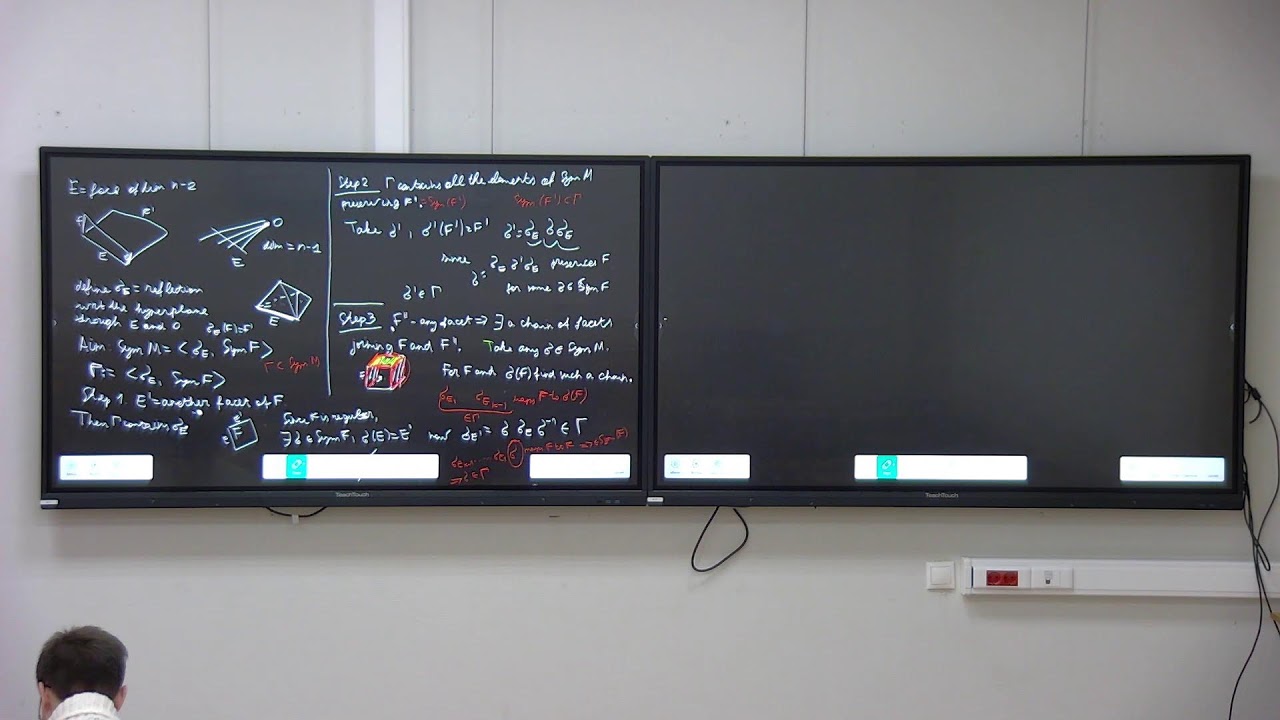 E = face of dim n-2
F F' E
O
dim = n-1
E
define σ_E = reflection
w.r.t the hyperplane
through E and O σ_E(F)=F'
E
Aim: Sym M = <σ_E, Sym F>
Γ ⊂ Sym M
Γ := <σ_E, Sym F>
Step 1. E' = another facet of F
Then Γ contains σ_E'
Since F is regular,
∃ σ ∈ Sym F, σ(E)=E' now σ_E' = σ σ_E σ^-1 ∈ Γ
Step 2 Γ contains all the elements of Sym M
preserving F'. = Sym(F') Sym(F') ⊂ Γ
Take σ', σ'(F')=F' σ' = σ_E σ σ_E
since σ_E σ' σ_E preserves F
σ = for some σ ∈ Sym F
σ' ∈ Γ
Step 3 F'' - any facet ⇒ ∃ a chain of facets
joining F and F''. Take any σ ∈ Sym M.
For F and σ(F) find such a chain.
maps F to σ(F)
∈Γ
maps F to F
⇒ σ ∈ Γ
TeachTouch
TeachTouch